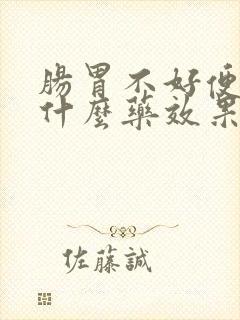 腸胃不好便
什麼藥效果
佐藤誠